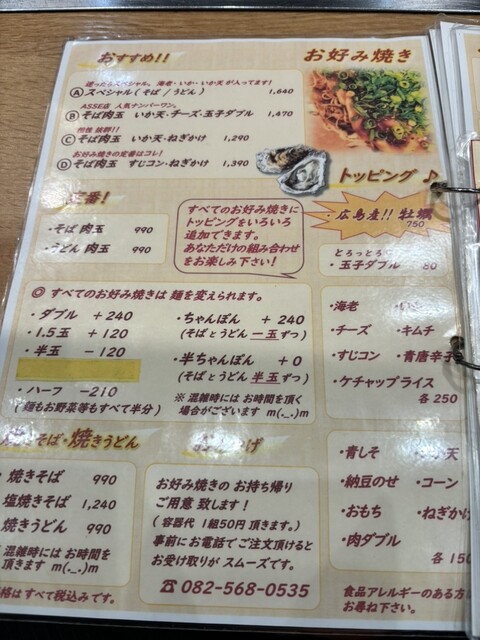 おすすめ!!
お好み焼き
迷ったらスペシャル。海老・いか・いか天が入ってます!
Ⓐスペシャル(そば/うどん) 1,640
ASSE店 人気ナンバーワン。
Ⓑそば肉玉 いか天・チーズ・玉子ダブル 1,470
相性 抜群!!
Ⓒそば肉玉 いか天・ねぎかけ 1,290
お好み焼きの定番はコレ!
Ⓓそば肉玉 すじコン・ねぎかけ 1,390
定番!
・そば 肉玉 990
・うどん 肉玉 990
すべてのお好み焼きに
トッピングをいろいろ
追加できます。
あなただけの組み合わせ
をお楽しみ下さい!
トッピング♪
・広島産!! 牡蠣
750
とろっとろ
・玉子ダブル 80
◎ すべてのお好み焼きは 麺を変えられます。
・ダブル +240
・1.5玉 +120
・半玉 -120
・ハーフ -210
(麺もお野菜等もすべて半分)
・ちゃんぽん +240
(そばとうどん 一玉ずつ)
・半ちゃんぽん +0
(そばとうどん 半玉ずつ)
※ 混雑時には お時間を頂く
場合がございます m(._.)m
・海老
・チーズ ・キムチ
・すじコン ・青唐辛子
・ケチャップライス
各250
そば・焼きうどん
焼きそば 990
塩焼きそば 1,240
焼きうどん 990
混雑時には お時間を
頂きます m(._.)m
価格は すべて税込み です。
お好み焼きの お持ち帰り
ご用意 致します!
(容器代 1組50円 頂きます。)
事前にお電話でご注文頂けると
お受け取りが スムーズです。
☎082-568-0535
・青しそ 天
・納豆のせ ・コーン
・おもち ・ねぎかけ
・肉ダブル
各150
食品アレルギーのある方は
お尋ね下さい。